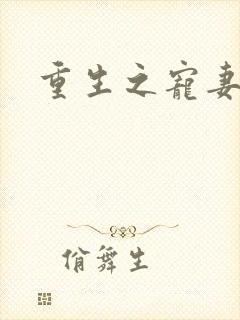 重生之宠妻
俏舞生